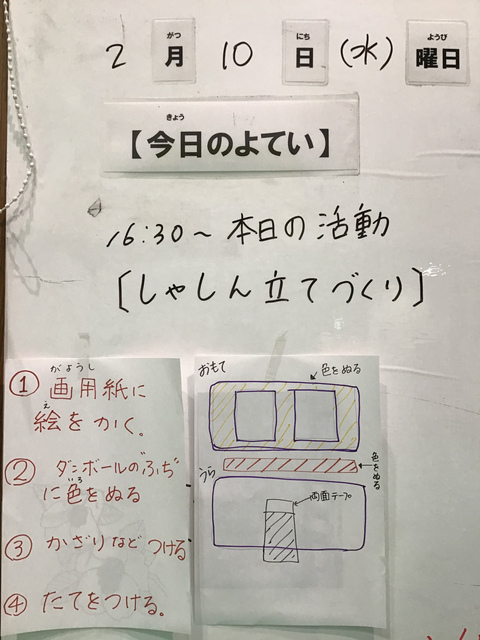 2月10日(水)曜日
【今日のよてい】
16:30〜 本日の活動
[しゃしん立てづくり]
① 画用紙に
絵をかく。
② ダンボールのふちに
に色をぬる
③ かざりなどつける
④ たてをつける。
おもて
色をぬる
色をぬる
うら
両面テープ